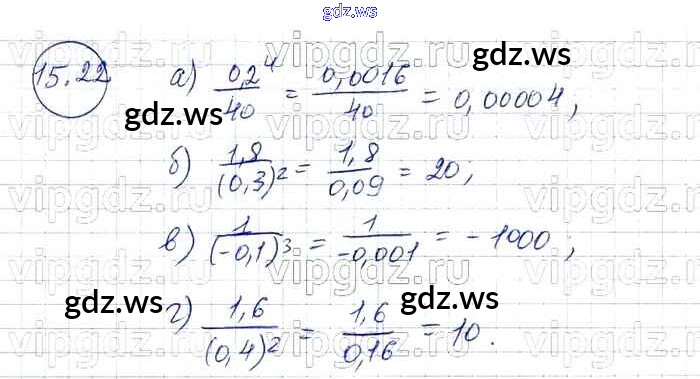 gdz.ws
15.22 а) 0,2⁴/40 = 0,0016/40 = 0,00004;
б) 1,8/(0,3)² = 1,8/0,09 = 20;
в) 1/(-0,1)³ = 1/-0,001 = -1000;
г) 1,6/(0,4)² = 1,6/0,16 = 10.
gdz.ws
gdz.ws
gdz.ws
gdz.ws
vipgdz.ru
vipgdz.ru
vipgdz.ru
vipgdz.ru
vipgdz.ru
vipgdz.ru